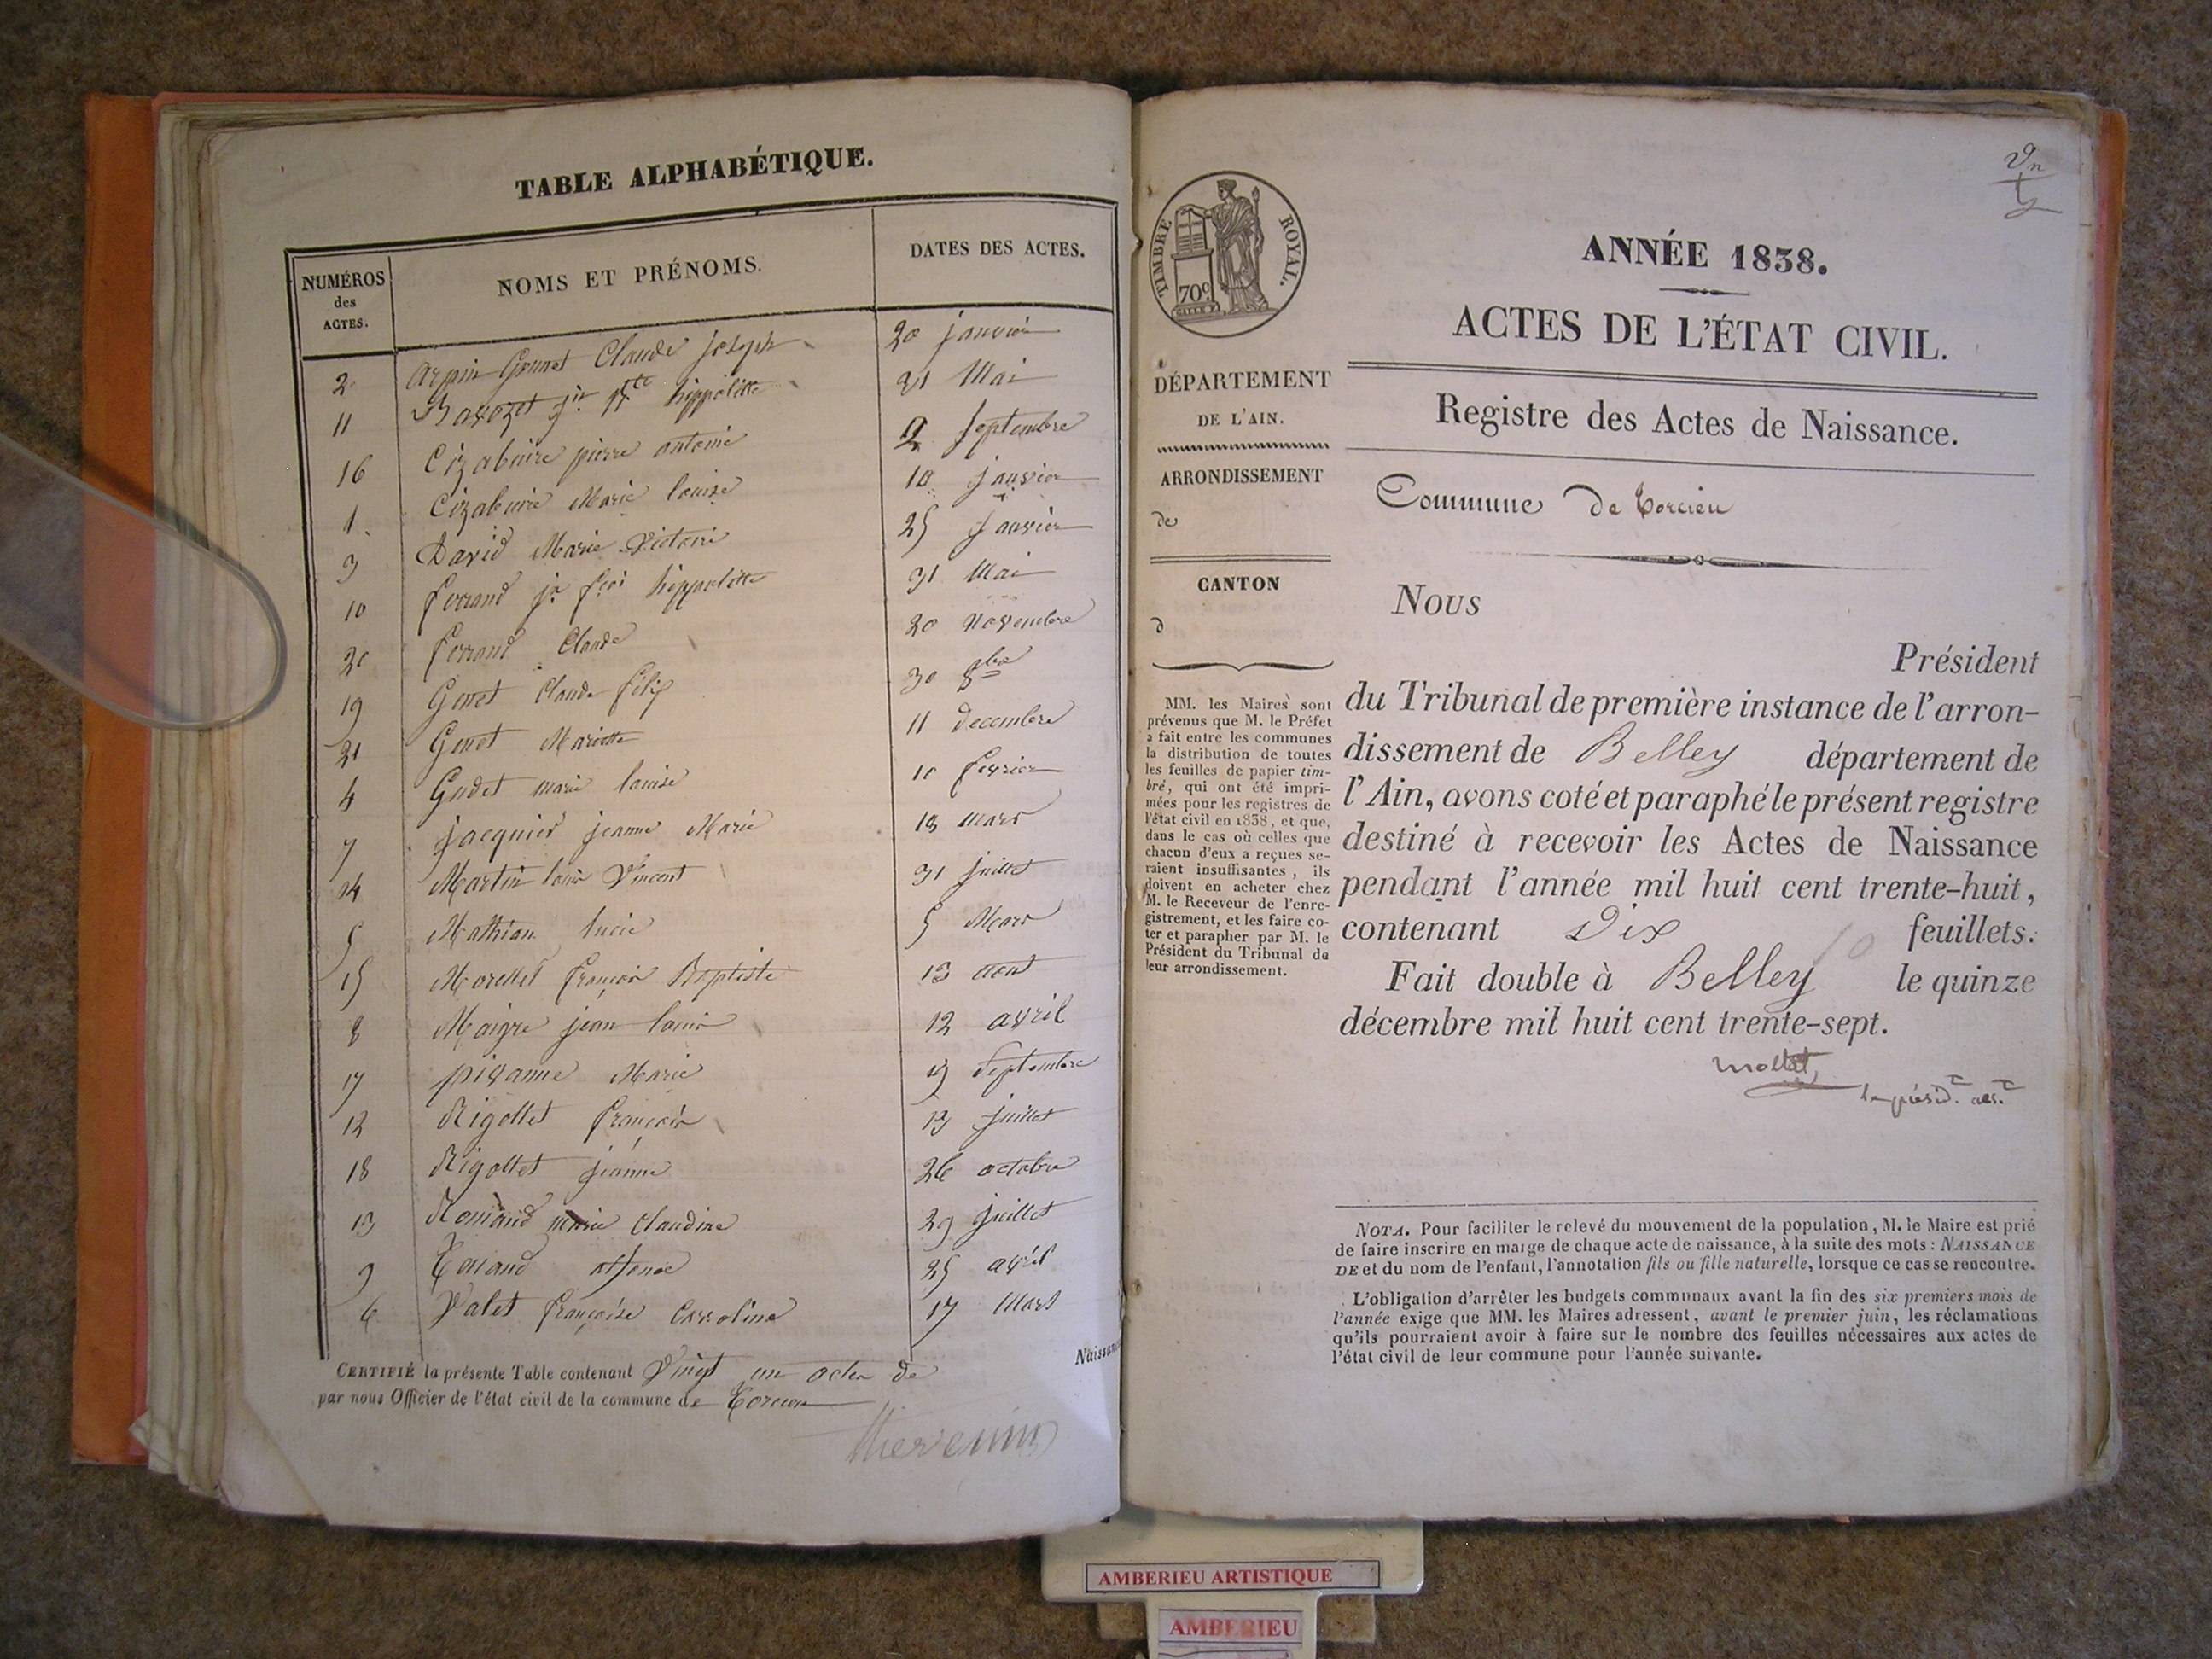 TABLE ALPHABÉTIQUE.
NUMÉROS des ACTES. NOMS ET PRÉNOMS. DATES DES ACTES.
2 Arpin Gonnet Claude joseph 20 janvier
11 hippolitte 31 Mai
16 Cizabuire pierre antoine 2 Septembre
1 Cizabuire Marie louise 10 janvier
3 David Marie Victoire 25 janvier
10 ferrand jn fçoi hippolitte 31 Mai
20 ferrand Claude 20 Novembre
19 Genet Claude félix 30 8bre
21 Genet Mariette 11 decembre
4 Gudet marie louise 10 fevrier
7 jacquier jeanne Marie 18 mars
14 Martin louis Vincent 31 juillet
5 Mathian lucie 5 Mars
15 Morellet françois Baptiste 13 aout
8 Maigre jean louis 12 avril
17 piganne Marie 9 Septembre
12 Rigollet françois 13 juillet
18 Rigollet jeanne 26 octobre
13 Romand marie Claudine 29 juillet
9 25 avril
6 Valet françoise Carroline 17 Mars
CERTIFIÉ la présente Table contenant Vingt un actes de Naissan
par nous Officier de l'état civil de la commune de Torcieu
TIMBRE ROYAL.
70c
ANNÉE 1838.
ACTES DE L'ÉTAT CIVIL.
DÉPARTEMENT
DE L'AIN.
Registre des Actes de Naissance.
ARRONDISSEMENT
de
Commune de Torcieu
CANTON
d
MM. les Maires sont
prévenus que M. le Préfet
a fait entre les communes
la distribution de toutes
les feuilles de papier tim-
bré, qui ont été impri-
mées pour les registres de
l'état civil en 1838, et que,
dans le cas où celles que
chacun d'eux a reçues se-
raient insuffisantes, ils
doivent en acheter chez
M. le Receveur de l'enre-
gistrement, et les faire co-
ter et parapher par M. le
Président du Tribunal de
leur arrondissement.
NOUS
Président
du Tribunal de première instance de l'arron-
dissement de Belley département de
l'Ain, avons coté et paraphé le présent registre
destiné à recevoir les Actes de Naissance
pendant l'année mil huit cent trente-huit,
contenant Dix 10 feuillets.
Fait double à Belley le quinze
décembre mil huit cent trente-sept.
mollet
NOTA. Pour faciliter le relevé du mouvement de la population, M. le Maire est prié
de faire inscrire en marge de chaque acte de naissance, à la suite des mots : NAISSANCE
DE et du nom de l'enfant, l'annotation fils ou fille naturelle, lorsque ce cas se rencontre.
L'obligation d'arrêter les budgets communaux avant la fin des six premiers mois de
l'année exige que MM. les Maires adressent, avant le premier juin, les réclamations
qu'ils pourraient avoir à faire sur le nombre des feuilles nécessaires aux actes de
l'état civil de leur commune pour l'année suivante.
AMBERIEU ARTISTIQUE
AMBERIEU